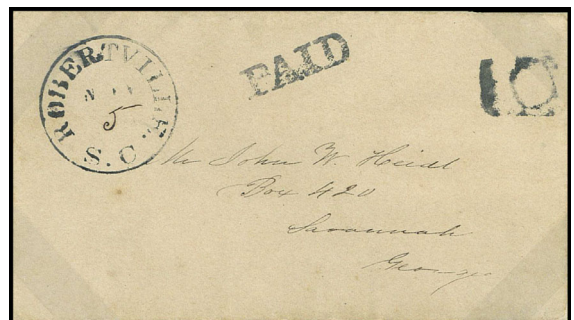 ROBERTVILLE. S.C.
5
PAID
10
Mr John W. Heidt
Box 420
Savannah
Georgia